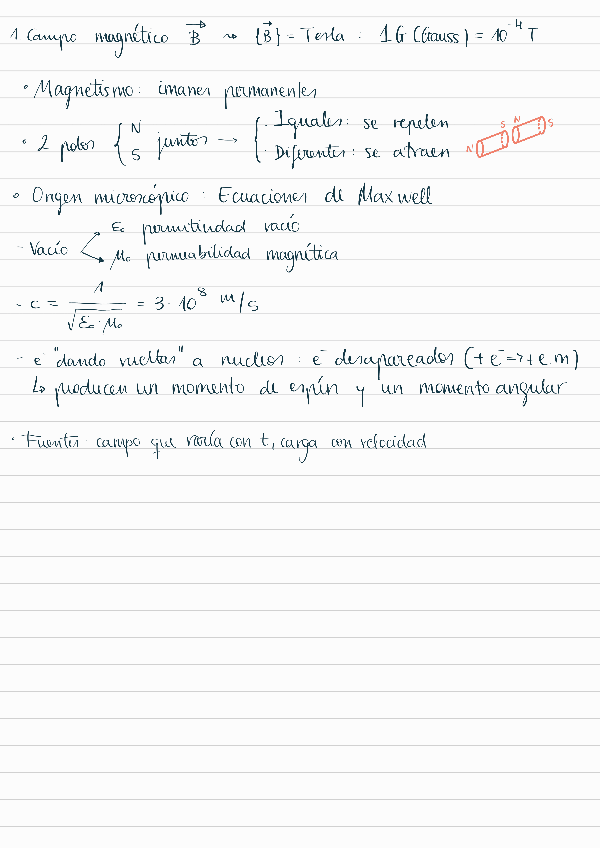 1 Campo magnético B⃗ ⇝ {B⃗} = Tesla : 1G (Gauss) = 10⁻⁴ T
• Magnetismo: imanes permanentes
• 2 polos { N S juntos → { · Iguales: se repelen
· Diferentes: se atraen
N S N S
• Origen microscópico: Ecuaciones de Maxwell
- Vacío ε₀ permitividad vacío
μ₀ permeabilidad magnética
- c = 1 / √(ε₀·μ₀) = 3·10⁸ m/s
- e⁻ "dando vueltas" a nucleos: e⁻ desapareados (+ e⁻ → + e.m)
↳ producen un momento de espín y un momento angular
• Fuentes: campo que varía con t, carga con velocidad